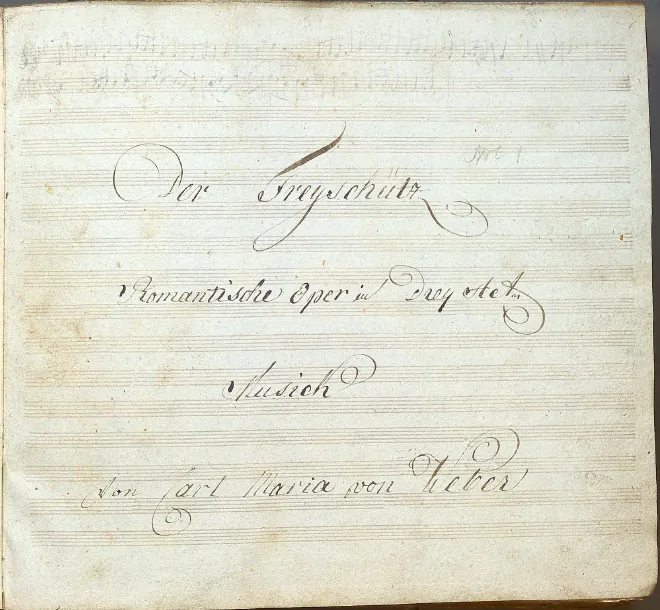 Der Freyschütz
Romantische Oper in Drey Act
Musick
Von Carl Maria von Weber